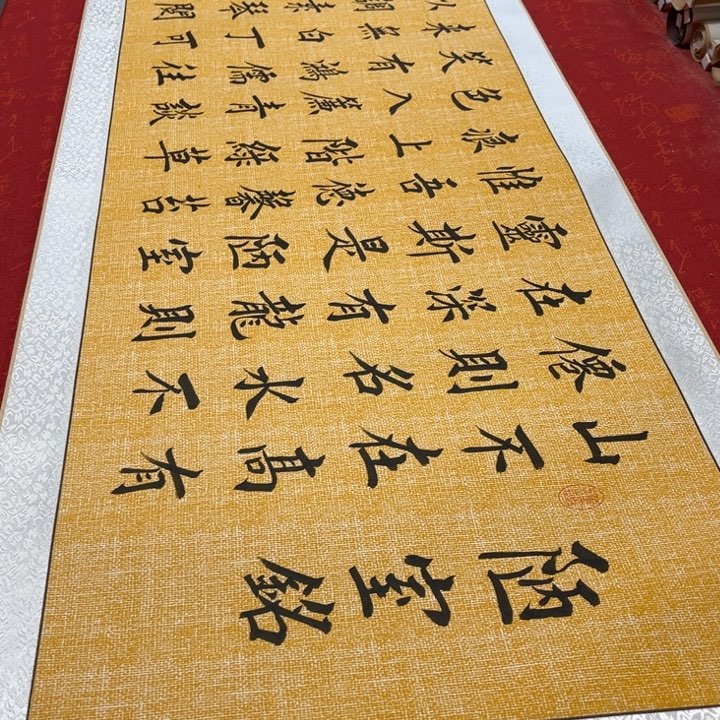 陋室銘
山不在高有
僊則名水不
在深有龍則
靈斯是陋室
惟吾德馨苔
痕上階綠草
色入簾青談
笑有鴻儒往
來無白丁可
以調素琴閱